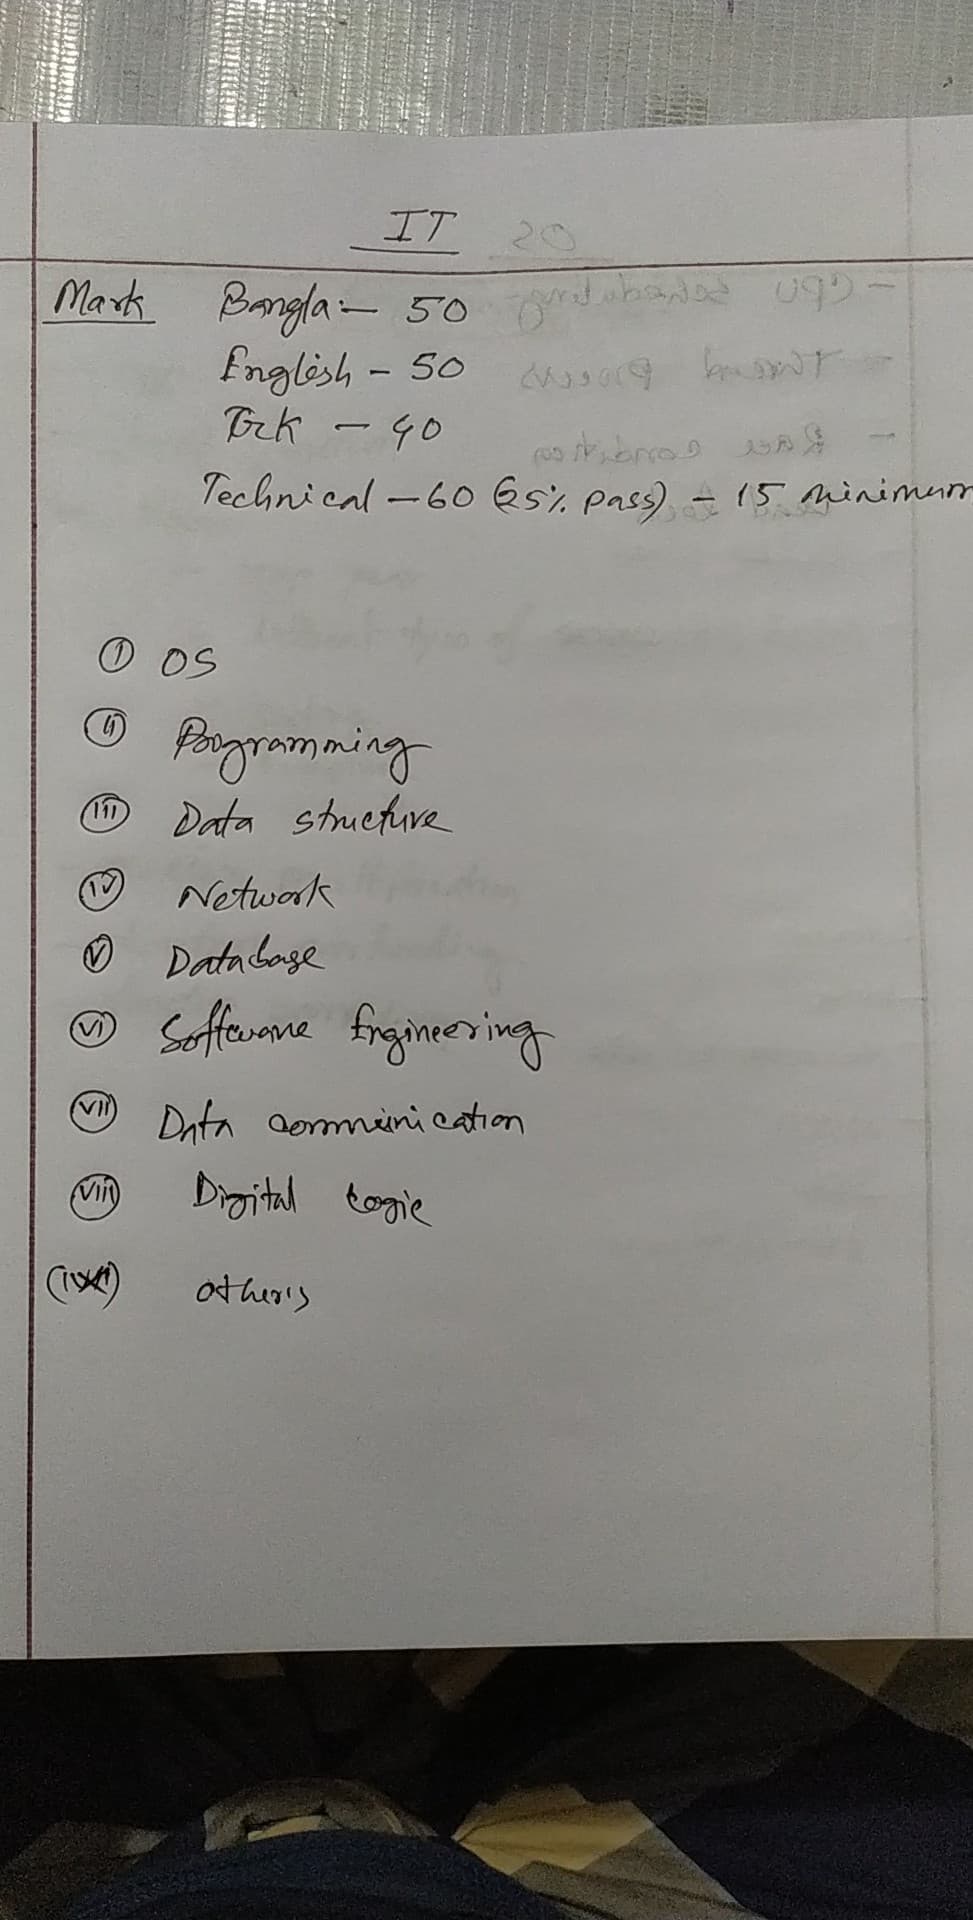 IT
Mark Bangla:- 50
English - 50
GK - 40
Technical - 60 (25% pass) - 15 minimum
(I) OS
(II) Programming
(III) Data structure
(IV) Network
(V) Database
(VI) Software Engineering
(VII) Data communication
(VIII) Digital Logic
others